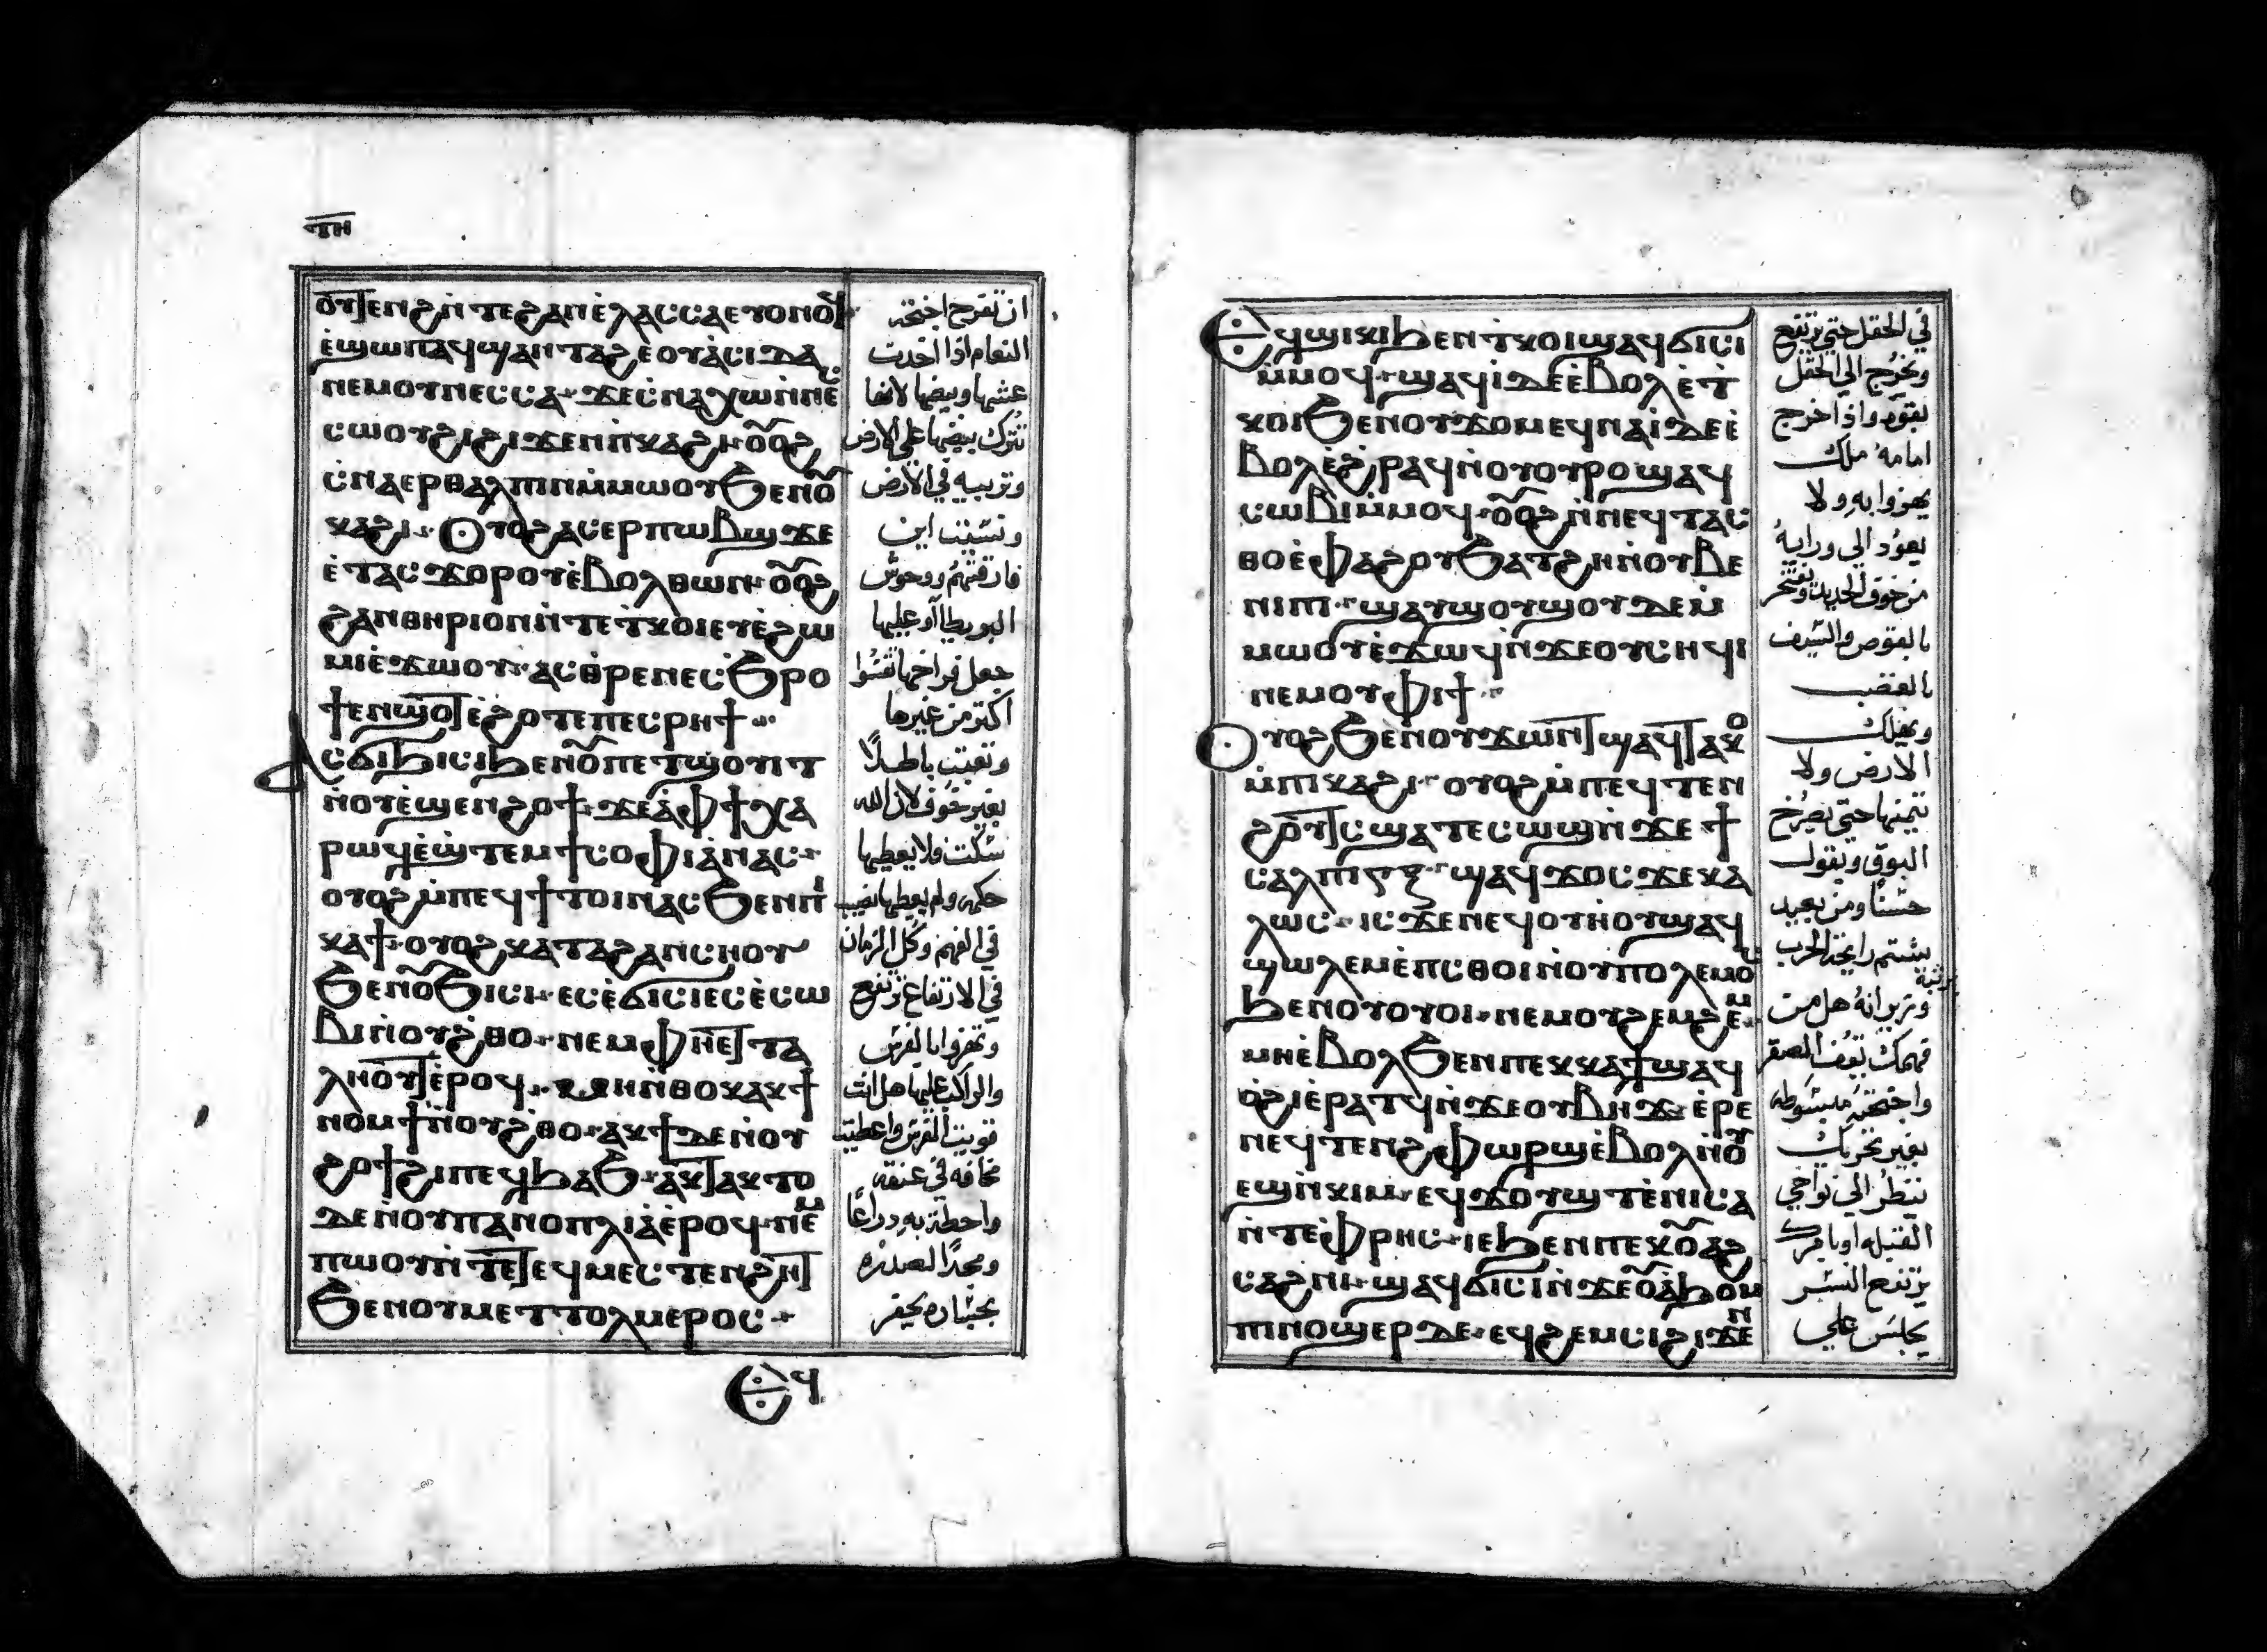 ⲧⲏ
ⲟⲩⲧⲉⲛϩ ⲛ̀ⲧⲉ ϩⲁⲛⲉ̀ⲗⲁⲥⲥⲁ ⲉⲩⲟⲩⲛⲟϥ
ⲉ̀ϣⲱⲡ ⲁϥϣⲁⲛⲧⲁϩⲉ ⲟⲩⲁ̀ⲥⲓⲇⲁ
ⲛⲉⲙ ⲟⲩⲛⲉⲥⲥⲁ ϫⲉ ⲥ̀ⲛⲁⲭⲱ ⲛ̀ⲛⲉⲥ
ⲥⲱⲟⲩϩⲓ ϩⲓϫⲉⲛ ⲡⲓⲕⲁϩⲓ ⲟⲩⲟϩ
ⲥ̀ⲛⲁⲉⲣⲑⲁⲗⲡⲓⲛ ⲙ̀ⲙⲱⲟⲩ ϧⲉⲛ ⲟⲩ
ⲕⲁϩⲓ Ⲟⲩⲟϩ ⲁⲥⲉⲣⲡⲱⲃϣ ϫⲉ
ⲉ̀ⲧⲁⲥϫⲟⲣⲟⲩ ⲉ̀ⲃⲟⲗ ⲑⲱⲛ ⲟⲩⲟϩ
ϩⲁⲛⲑⲏⲣⲓⲟⲛ ⲛ̀ⲧⲉ ⲧ̀ⲕⲟⲓ ⲉⲩⲉ̀ϩⲱ
ⲙⲓ ⲉ̀ϫⲱⲟⲩ ⲁⲥⲑ̀ⲣⲉ ⲛⲉⲥϭⲣⲟ
ϯ ⲉⲛϣⲟⲧ ⲉ̀ϩⲟⲧⲉ ⲡⲉⲥⲣⲏϯ
Ⲁⲥϭⲓϧⲓⲥⲓ ϧⲉⲛ ⲟⲩⲡⲉⲧϣⲟⲩⲓⲧ
ⲛ̀ⲟⲩⲉ̀ϣⲉⲛ ϩⲟϯ ϫⲉ ⲁ̀ ⲫϯ ⲭⲁ
ⲣⲱϥ ⲉ̀ϣ̀ⲧⲉⲙϯⲥⲟⲫⲓⲁ̀ ⲛⲁⲥ
ⲟⲩⲟϩ ⲙ̀ⲡⲉϥϯⲧⲟⲓ ⲛⲁⲥ ϧⲉⲛ ⲡⲓ
ⲕⲁϯ ⲟⲩⲟϩ ⲕⲁⲧⲁ ϩⲁⲛⲥⲏⲟⲩ
ϧⲉⲛ ⲟⲩϭⲓⲥⲓ ⲉⲥⲉ̀ϭⲓⲥⲓ ⲉⲥⲉ̀ⲥⲱ
ⲃⲓ ⲛ̀ⲟⲩϩ̀ⲑⲟ ⲛⲉⲙ ⲫⲏⲉⲧⲧⲁ
ⲗⲏⲟⲩⲧ ⲉ̀ⲣⲟϥ ϫⲉ ⲁⲛ ⲛ̀ⲑⲟⲕ ⲁⲕϯ
ⲛⲟⲙϯ ⲛ̀ⲟⲩϩ̀ⲑⲟ ⲁⲕϯ ⲇⲉ ⲛ̀ⲟⲩ
ϩⲟϯ ϩⲓ ⲡⲉϥϧⲁϧ ⲁⲕⲧⲁⲕⲧⲟ
ⲇⲉ ⲛ̀ⲟⲩⲡⲁⲛⲟⲡⲗⲓⲁ̀ ⲉ̀ⲣⲟϥ ⲛⲉⲙ
ⲡⲱⲟⲩ ⲛ̀ⲧⲉ ⲧⲉϥⲙⲉⲥⲧⲉⲛϩⲏⲧ
ϧⲉⲛ ⲟⲩⲙⲉⲧⲧⲟⲗⲙⲉⲣⲟⲥ
ان تفرح اجنحة
النعام اذا اخدت
عشها وبيضها لانها
تترك بيضها على الارض
وتربيه في الارض
ونسيت اين
فارقتهم ووحوش
البر يطاأو عليها
جعل فراخها تقسوا
اكثر من غيرها
وتعبت باطلاً
بغير خوف لان الله
سكت ولا يعطيها
حكمه ولم يعطيها نصيب
في الفهم وكل الزمان
في الارتفاع ترتفع
وتهزوا بالفرس
والراكب عليها هل انت
قويت الفرس واعطيت
مخافه في عنقه
واحطت به دراعاً
ومجداً لصدره
بجسّاره يحفر
ⲉϥ
Ⲉϥϣⲓⲕⲓ ϧⲉⲛ ⲧ̀ⲕⲟⲓ ϣⲁϥϭⲓⲥⲓ
ⲙ̀ⲙⲟϥ ϣⲁϥⲓ̀ ⲇⲉ ⲉ̀ⲃⲟⲗ ⲉ̀ⲧ̀
ⲕⲟⲓ ϧⲉⲛ ⲟⲩϫⲟⲙ ⲉϥⲛⲁⲓ̀ ⲇⲉ ⲉ̀
ⲃⲟⲗ ⲉ̀ϩ̀ⲣⲁϥ ⲛ̀ⲟⲩⲟⲩⲣⲟ ϣⲁϥ
ⲥⲱⲃⲓ ⲙ̀ⲙⲟϥ ⲟⲩⲟϩ ⲛ̀ⲛⲉϥⲧⲁⲥ
ⲑⲟ ⲉ̀ⲫⲁϩⲟⲩ ϧⲁⲧϩⲏ ⲛ̀ⲟⲩⲃⲉ
ⲛⲓⲡⲓ ϣⲁⲩϣⲟⲩϣⲟⲩ ⲇⲉ ⲙ̀
ⲙⲱⲟⲩ ⲉ̀ϫⲱϥ ⲛ̀ϫⲉ ⲟⲩⲥⲏϥⲓ
ⲛⲉⲙ ⲟⲩⲫⲓϯ
Ⲟⲩⲟϩ ϧⲉⲛ ⲟⲩϫⲱⲛⲧ ϣⲁϥⲧⲁⲕⲟ
ⲙ̀ⲡⲓⲕⲁϩⲓ ⲟⲩⲟϩ ⲙ̀ⲡⲉϥⲧⲉⲛ
ϩⲟⲩⲧⲥ ϣⲁⲧⲉⲥⲱϣ ⲛ̀ϫⲉ ϯ
ⲥⲁⲗⲡⲓⲅⲝ ϣⲁϥϫⲟⲥ ϫⲉ ⲕⲁ
ⲗⲱⲥ ⲓⲥϫⲉⲛ ⲉϥⲟⲩⲏⲟⲩ ϣⲁϥ
ϣⲱⲗⲉⲙ ⲉ̀ⲡⲥⲑⲟⲓ ⲛ̀ⲟⲩⲡⲟⲗⲉⲙⲟⲥ
ϧⲉⲛ ⲟⲩⲟⲩⲟⲓ ⲛⲉⲙ ⲟⲩϩⲉⲙϩⲉⲙ
ⲙⲏ ⲉ̀ⲃⲟⲗ ϧⲉⲛ ⲡⲉⲕⲕⲁϯ ϣⲁϥ
ⲟ̀ϩⲓ ⲉ̀ⲣⲁⲧϥ ⲛ̀ϫⲉ ⲟⲩⲃⲏϫ ⲉ̀ⲣⲉ
ⲛⲉϥⲧⲉⲛϩ ⲫⲱⲣϣ ⲉ̀ⲃⲟⲗ ⲛ̀ⲟⲩ
ⲉϣⲛ̀ⲕⲓⲙ ⲉϥϫⲟⲩϣⲧ ⲉ̀ⲛⲓⲥⲁ
ⲛ̀ⲧⲉ ⲫⲣⲏⲥ ⲓⲉ ϧⲉⲛ ⲡⲉⲕⲟⲩⲁϩ
ⲥⲁϩⲛⲓ ϣⲁϥϭⲓⲥⲓ ⲛ̀ϫⲉ ⲟⲩⲁ̀ϧⲱⲙ
ⲡⲓⲛⲟϣⲉⲣ ⲇⲉ ⲉϥϩⲉⲙⲥⲓ ϩⲓϫⲉⲛ
في الحقل حتى يرتفع
ويخرج الي الحقل
بقوه واذا خرج
امامه ملك
يهزوا به ولا
يعود الي ورايه
من خوف الحديد وتفتخر
بالقوس والسيف
بالغضب
ويهلك
الارض ولا
تتمنها حتى يصرخ
البوق ويقول
حسناً ومن بعيد
يشتم رايحة الحرب
وتربوانه هل من
فهمك يقف الصقر
واجنحته مبسوطه
بغير تحريك
ينظر الي نواحي
القبله او بامرك
يرتفع النسر
يجلس علي